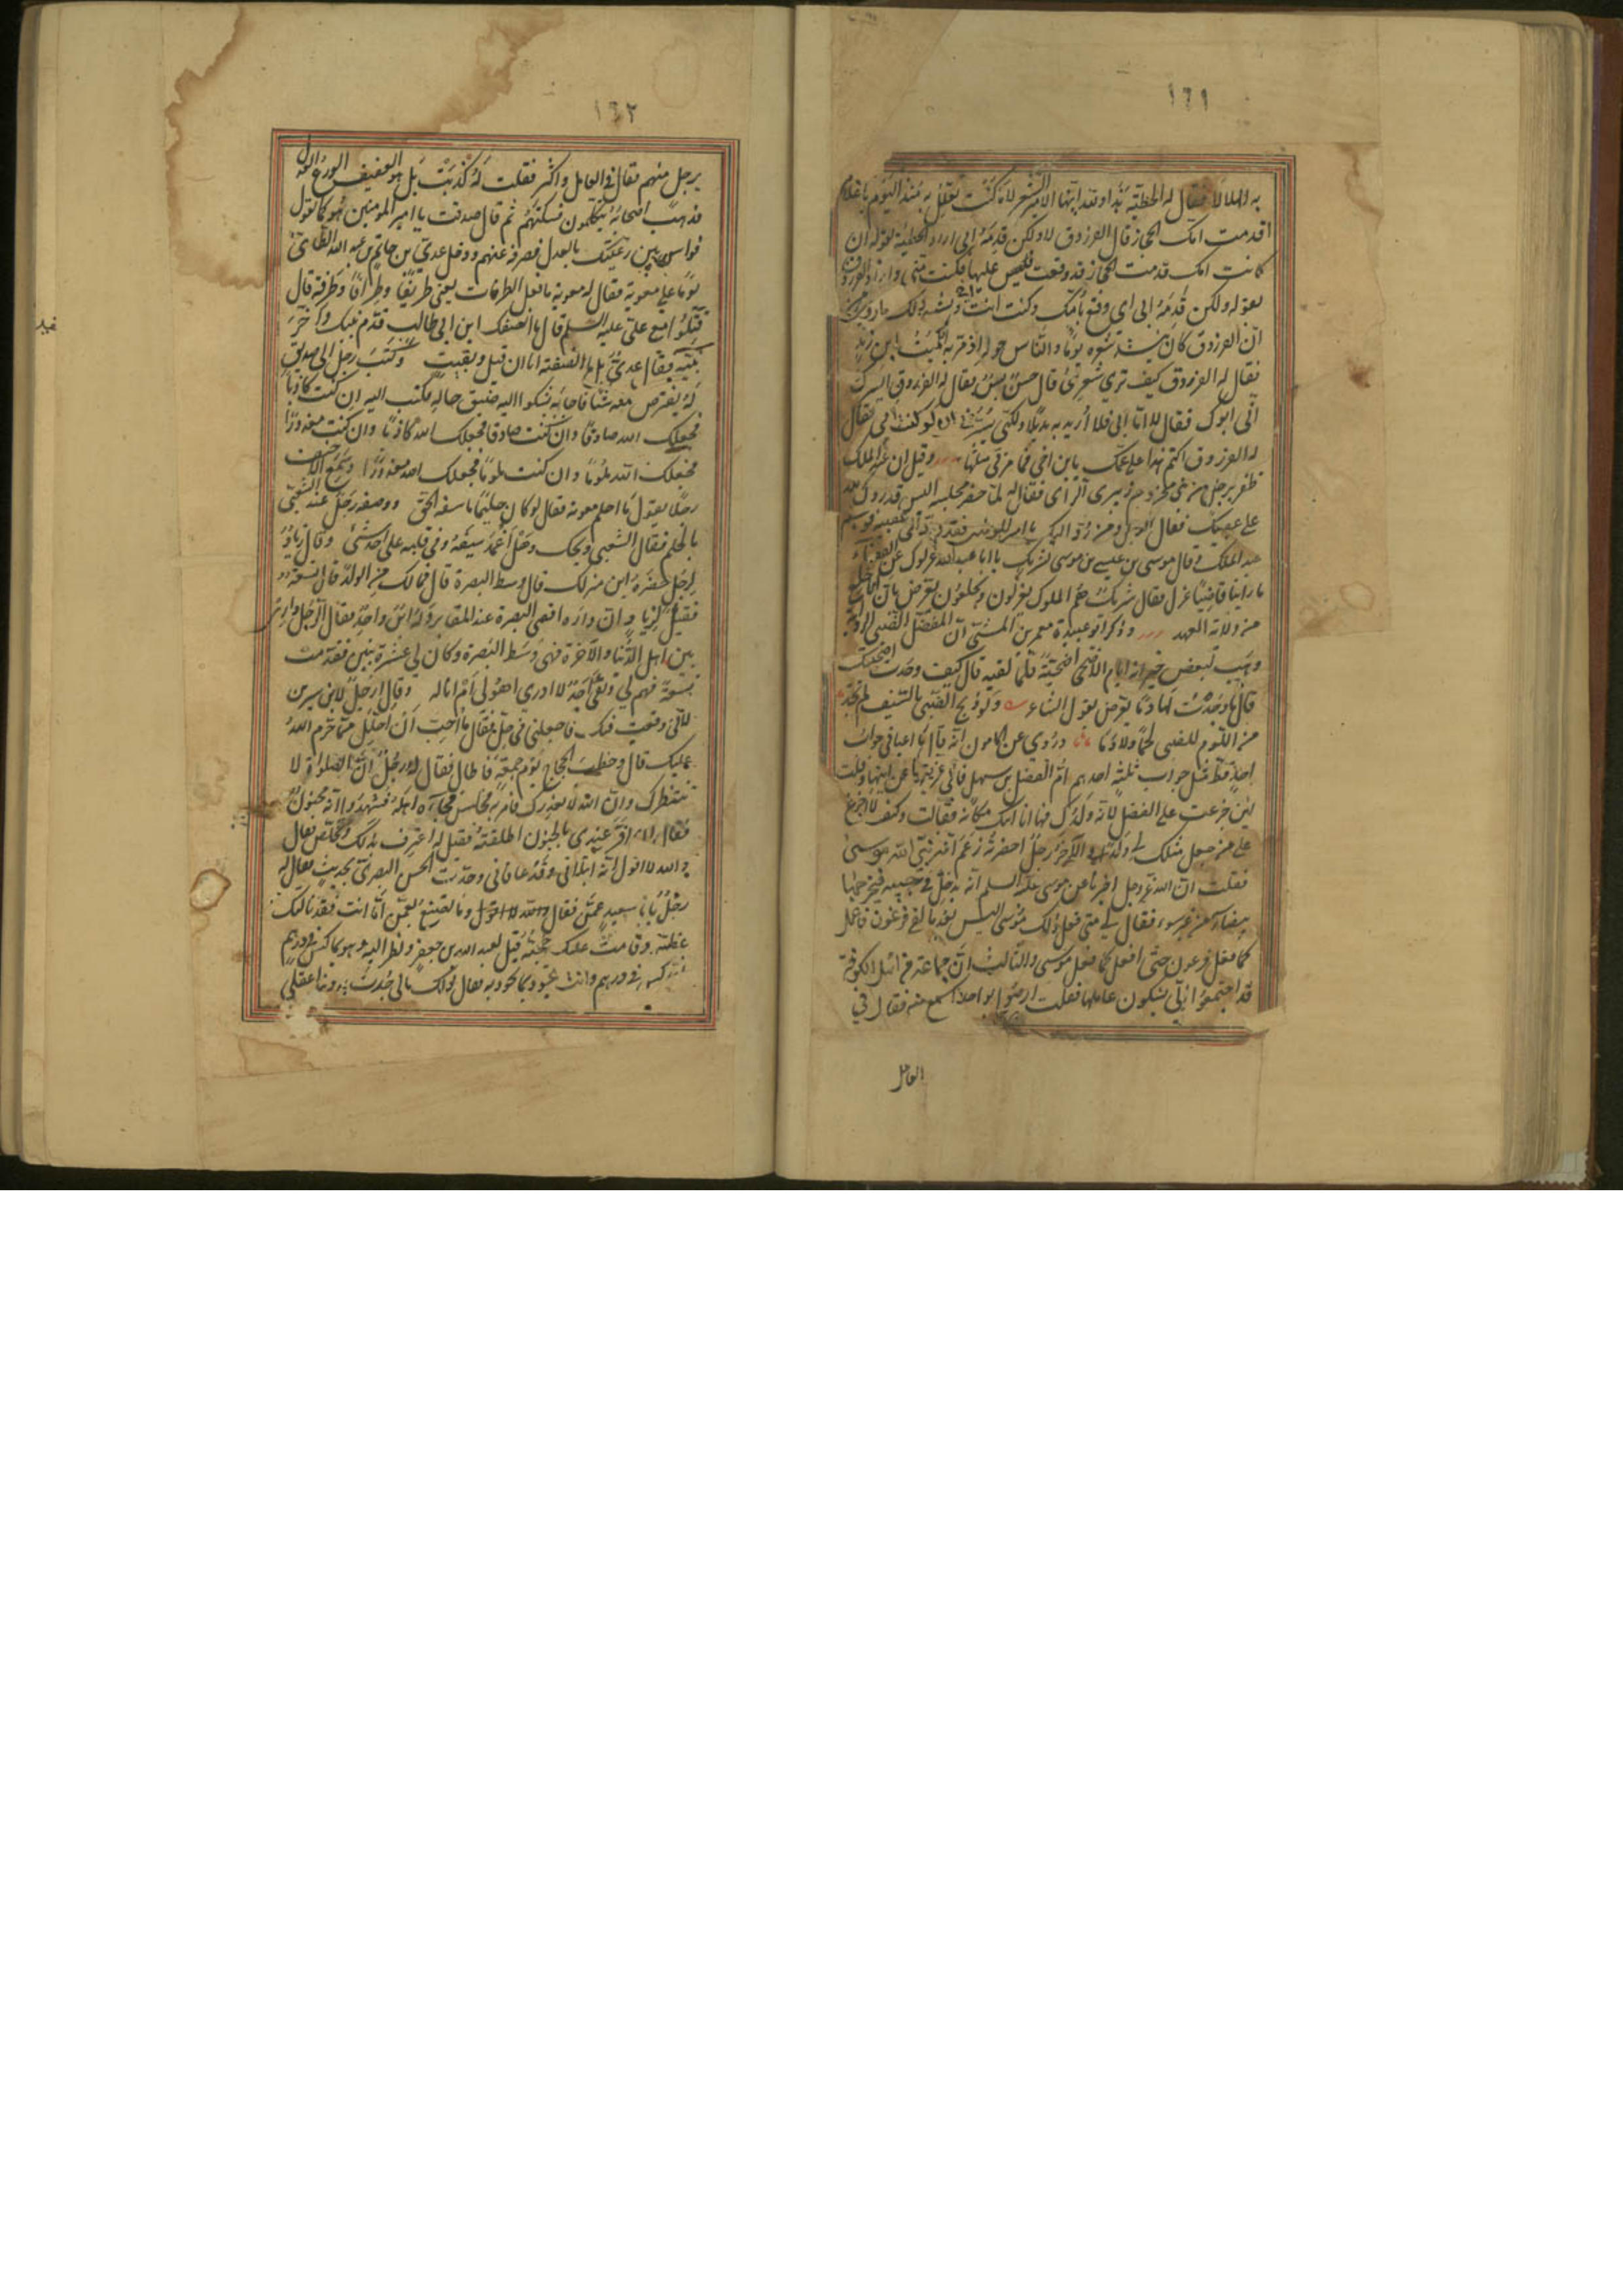 ١٦١
به الهلالا فقال له الحطيئة هذا وقد ايها الامير الشعر لا ما كنت تعلل به منذ اليوم يا غلام
اقدمت امك الحجاز قال الفرزدق لا ولكن قدمه ابي اراد الحطيئة بقوله ان
كانت امك قدمت الحجاز فقد وقعت عليها فكنت مني واراد الفرزدق
بقوله ولكن قدمه ابي اي وقع بامك وكنت انت
ان الفرزدق كان ينشد شعره يوما والناس حوله اذ مر به الكميت ابن زيد
فقال له الفرزدق كيف ترى شعري قال حسن بسن فقال له الفرزدق ايسرك
اني ابوك فقال له اما ابي فلا اريد به بدلا ولكني يسرني ان لو كنت امي فقال
له الفرزدق اكتم هذا على عمك يا بن اخي فما مر بي مثلها وقيل ان عبد الملك
ظفر برجل من بني مخزوم زبيري الرأي فقال له لما حضر مجلسه اليس قد ردك الله
على عقبيك فقال الرجل ومن رد اليك يا امير المؤمنين فقد رد على عقبيه
عبد الملك وقال موسى بن عيسى بن موسى لشريك يا ابا عبد الله عزلوك عن القضاء
ما راينا قاضيا عزل فقال شريك هم الملوك يعزلون ويخلعون يعرض بان اباه خلع
من ولاية العهد وذكر ابو عبيدة معمر بن المثنى ان المفضل الضبي الراوية
وهب لبعض جيرانه ايام الاضحى اضحية فلما لقيه قال كيف وجدت اضحيتك
قال ما وجدت لها دما يعرض بقول الشاعر ولو ذبح الضبي بالسيف لم تجد
من اللؤم للضبي لحما ولا دما وروي عن المامون انه قال ما اعياني جواب
احد قط مثل جواب ثلثة احدهم ام الفضل بن سهل فاني عزيتها عن ابنها وقلت
لئن جزعت على الفضل لانه ولدك فها انا ابنك مكانه فقالت وكيف لا اجزع
على من جعل مثلك لي ولدا والآخر رجل احضرته زعم انه نبي الله موسى
فقلت ان الله عز وجل اخبرنا عن موسى عليه السلم انه يدخل يده في جيبه فيخرجها
بيضاء من غير سوء فقال لي متى فعل ذلك موسى اليس بعد ما لقي فرعون فاعمل
كما فعل فرعون حتى افعل كما فعل موسى والثالث ان جماعة من اهل الكوفة
قد اجتمعوا الي يشكون عاملها فقلت ارضوا بواحد اسمع منه فقال في
العامل
١٦٢
برجل منهم فقال في العامل واكثر فقلت له كذبت بل هو العفيف الورع العدل
فذهب اصحابه يتكلمون فسكتهم ثم قال صدقت يا امير المؤمنين هو كما تقول
فواس بين رعيتك بالعدل فصرفه عنهم ودخل عدي بن حاتم بن عبد الله الطائي
يوما على معوية فقال له معوية ما فعل الطرفات يعني طريفا وطرافا وطرفة قال
قتلوا مع علي عليه السلم قال ما انصفك ابن ابي طالب قدم بنيك واخر
بنيه فقال عدي بل ما انصفته انا ان قتل وبقيت وكتب رجل الى صديق
له يقترض معه شيئا فاجابه يشكو اليه ضيق حاله فكتب اليه ان كنت كاذبا
فجعلك الله صادقا وان كنت صادقا فجعلك الله كاذبا وان كنت معذورا
فجعلك الله ملوما وان كنت ملوما فجعلك الله معذورا وسمع الاحنف
رجلا يقول ما احلم معوية فقال لو كان حليما ما سفه الحق ووصف رجل عند الشعبي
بالحلم فقال الشعبي ويحك وهل اغمد سيفه وفي قلبه على احد شيء وقال زياد
لرجل حضره اين منزلك قال وسط البصرة قال فما لك من الولد قال تسعة
فقيل لزياد ان داره اقصى البصرة عند المقابر وله ابن واحد فقال الرجل داري
بين اهل الدنيا والآخرة فهي وسط البصرة وكان لي عشرة بنين فقدمت
تسعة فهم لي وبقي واحد لا ادري اهو لي ام انا له وقال رجل لابن سيرين
اني وقعت فيك فاجعلني في حل فقال ما احب ان احلل مما حرم الله
عليك قال وخطب الحجاج يوم جمعة فاطال فقال له رجل ان الصلوة لا
تنتظرك وان الله لا يعذرك فامر به فحبس فجاءه اهله فشهدوا انه مجنون
فقال ان اقر عندي بالجنون اطلقته فقيل له اعترف بذلك وتخلص فقال
والله لا اقول انه ابتلاني وقد عافاني وحدث الحسن البصري بحديث فقال له
رجل يا ابا سعيد عمن فقال وما تصنع بعمن اما انت فقد نالتك
عظته وقامت عليك حجته قيل لعبد الله بن جعفر ونظر اليه وهو يماكس في درهم
تماكس في درهم وانت تجود بما تجود به فقال ذلك مالي جدت به وهذا عقلي